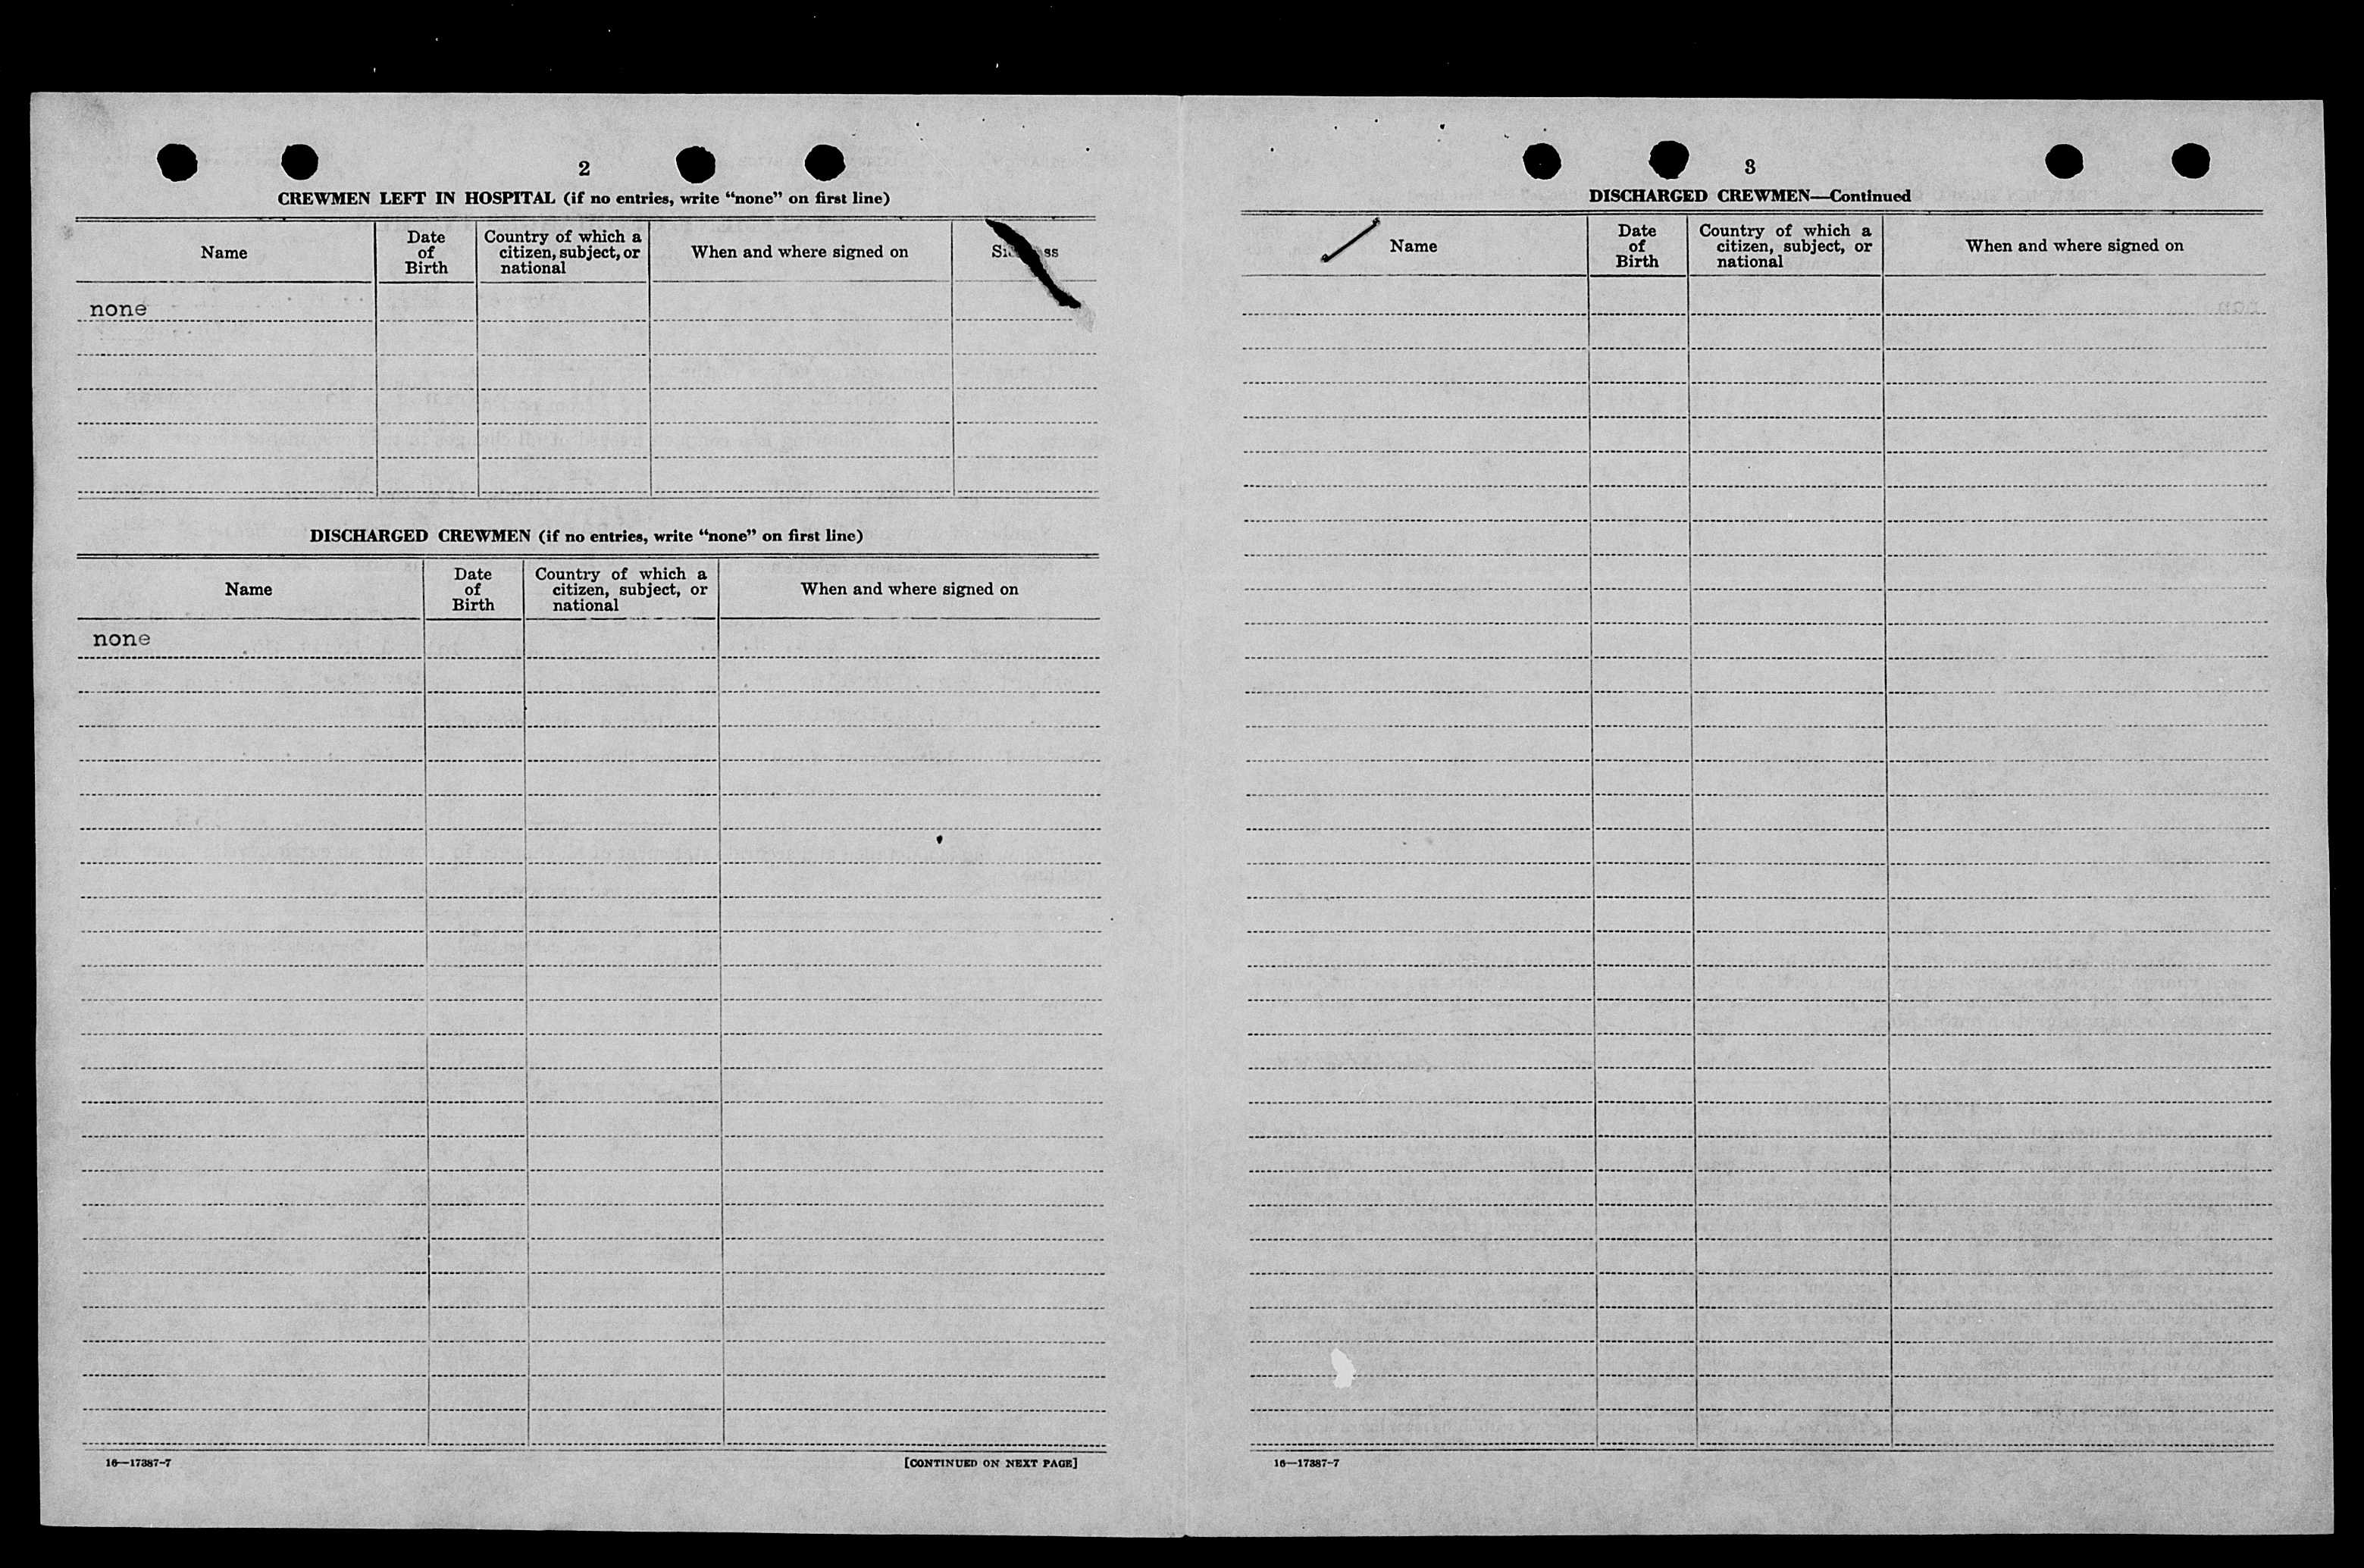 2
CREWMEN LEFT IN HOSPITAL (if no entries, write “none” on first line)
Name
Date of Birth
Country of which a citizen, subject, or national
When and where signed on
none
DISCHARGED CREWMEN (if no entries, write “none” on first line)
Name
Date of Birth
Country of which a citizen, subject, or national
When and where signed on
none
16—17387-7
[CONTINUED ON NEXT PAGE]
3
DISCHARGED CREWMEN—Continued
Name
Date of Birth
Country of which a citizen, subject, or national
When and where signed on
16—17387-7